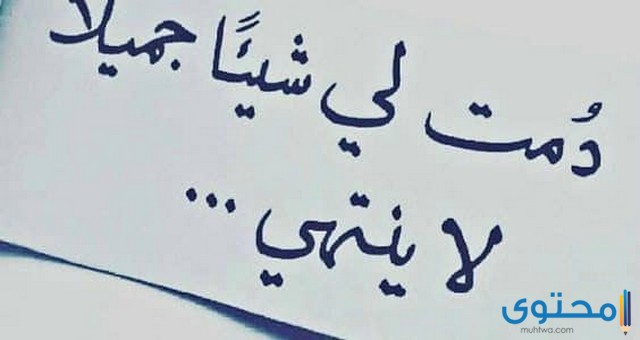 دُمت لي شيئًا جميلا
لا ينتهي ...
محتوى
muhtwa.com